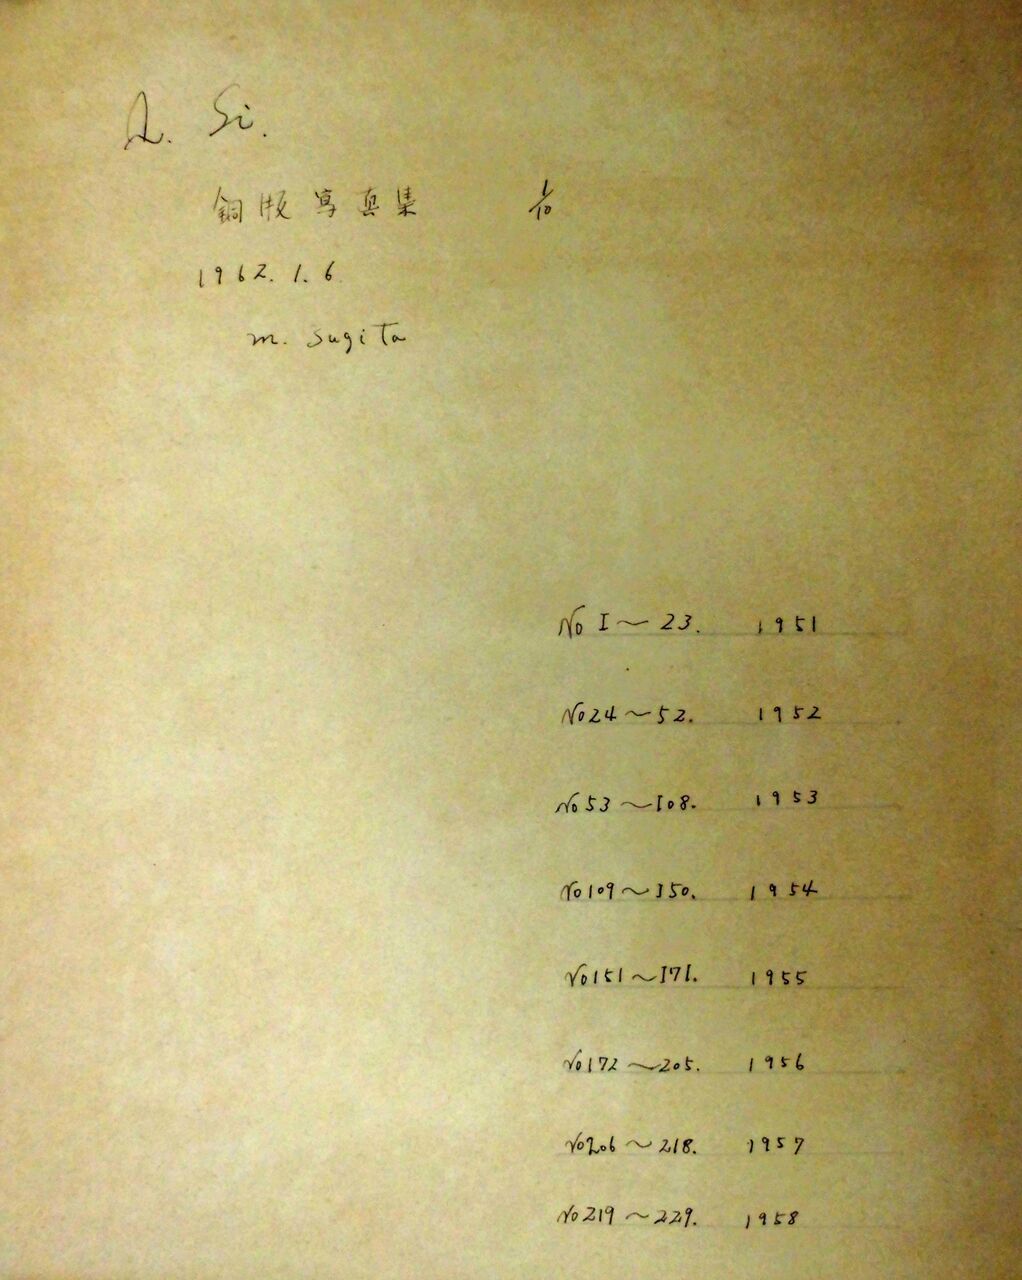 Q. Si.
銅版写真集 1/10
1962.1.6.
m. Sugita
No I～23. 1951
No24～52. 1952
No53～I08. 1953
No109～I50. 1954
No151～I7I. 1955
No172～205. 1956
No206～218. 1957
No219～229. 1958